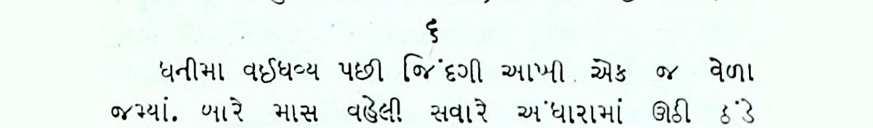 ૬
ધનીમા વઈધવ્ય પછી જિંદગી આખી એક જ વેળા
જમ્યાં. બારે માસ વહેલી સવારે અંધારામાં ઊઠી ઠંડે